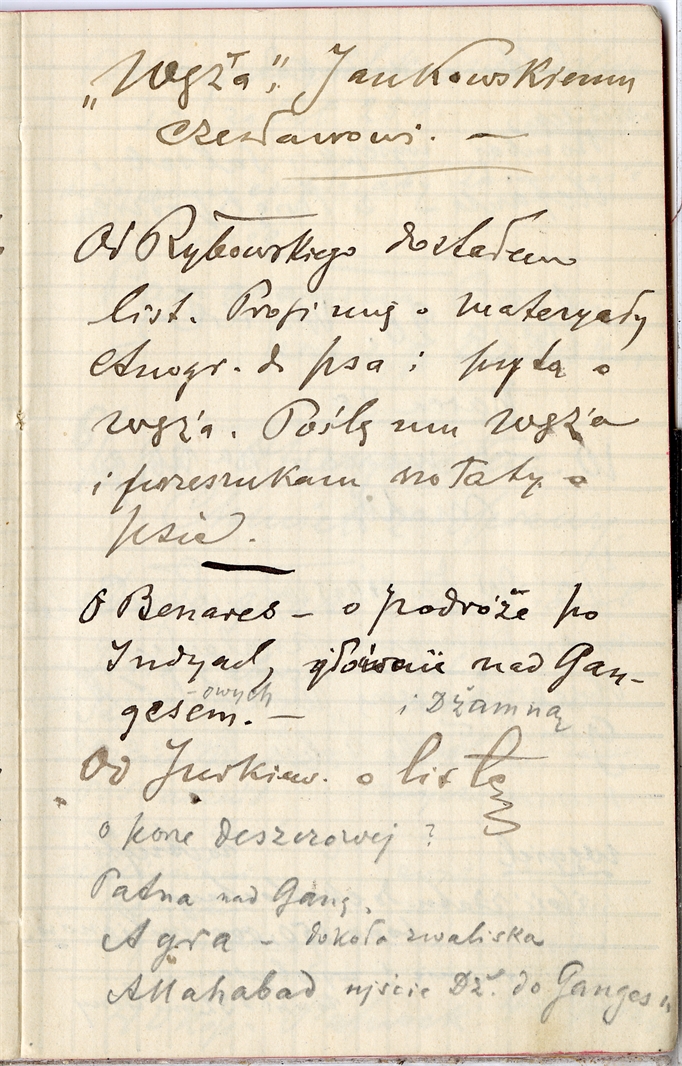 „Węża”, Jankowskiemu
Czesławowi. —
Od Rybowskiego dostałem
list. Prosi mię o materyały
etnogr. do psa i pyta o
węża. Poślę mu węża
i przeszukam notaty o
psie.
O Benares – o podróże po
Indyach, głównie nad Gan-
gesem. –
-owych
i Dżamną
Od Jurkiew. o listę
o porze deszczowej?
Patna nad Gang.
Agra – dokoła zwaliska
Allahabad ujście Dż. do Gangesu